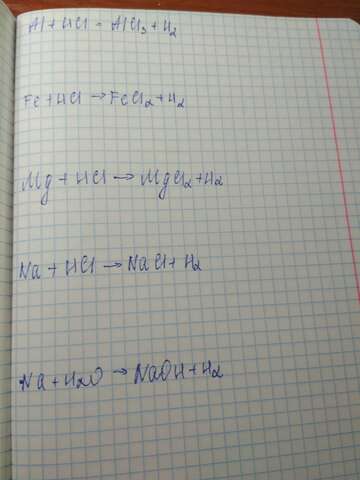 Al + HCl = AlCl3 + H2
Fe + HCl → FeCl2 + H2
Mg + HCl → MgCl2 + H2
Na + HCl → NaCl + H2
Na + H2O → NaOH + H2